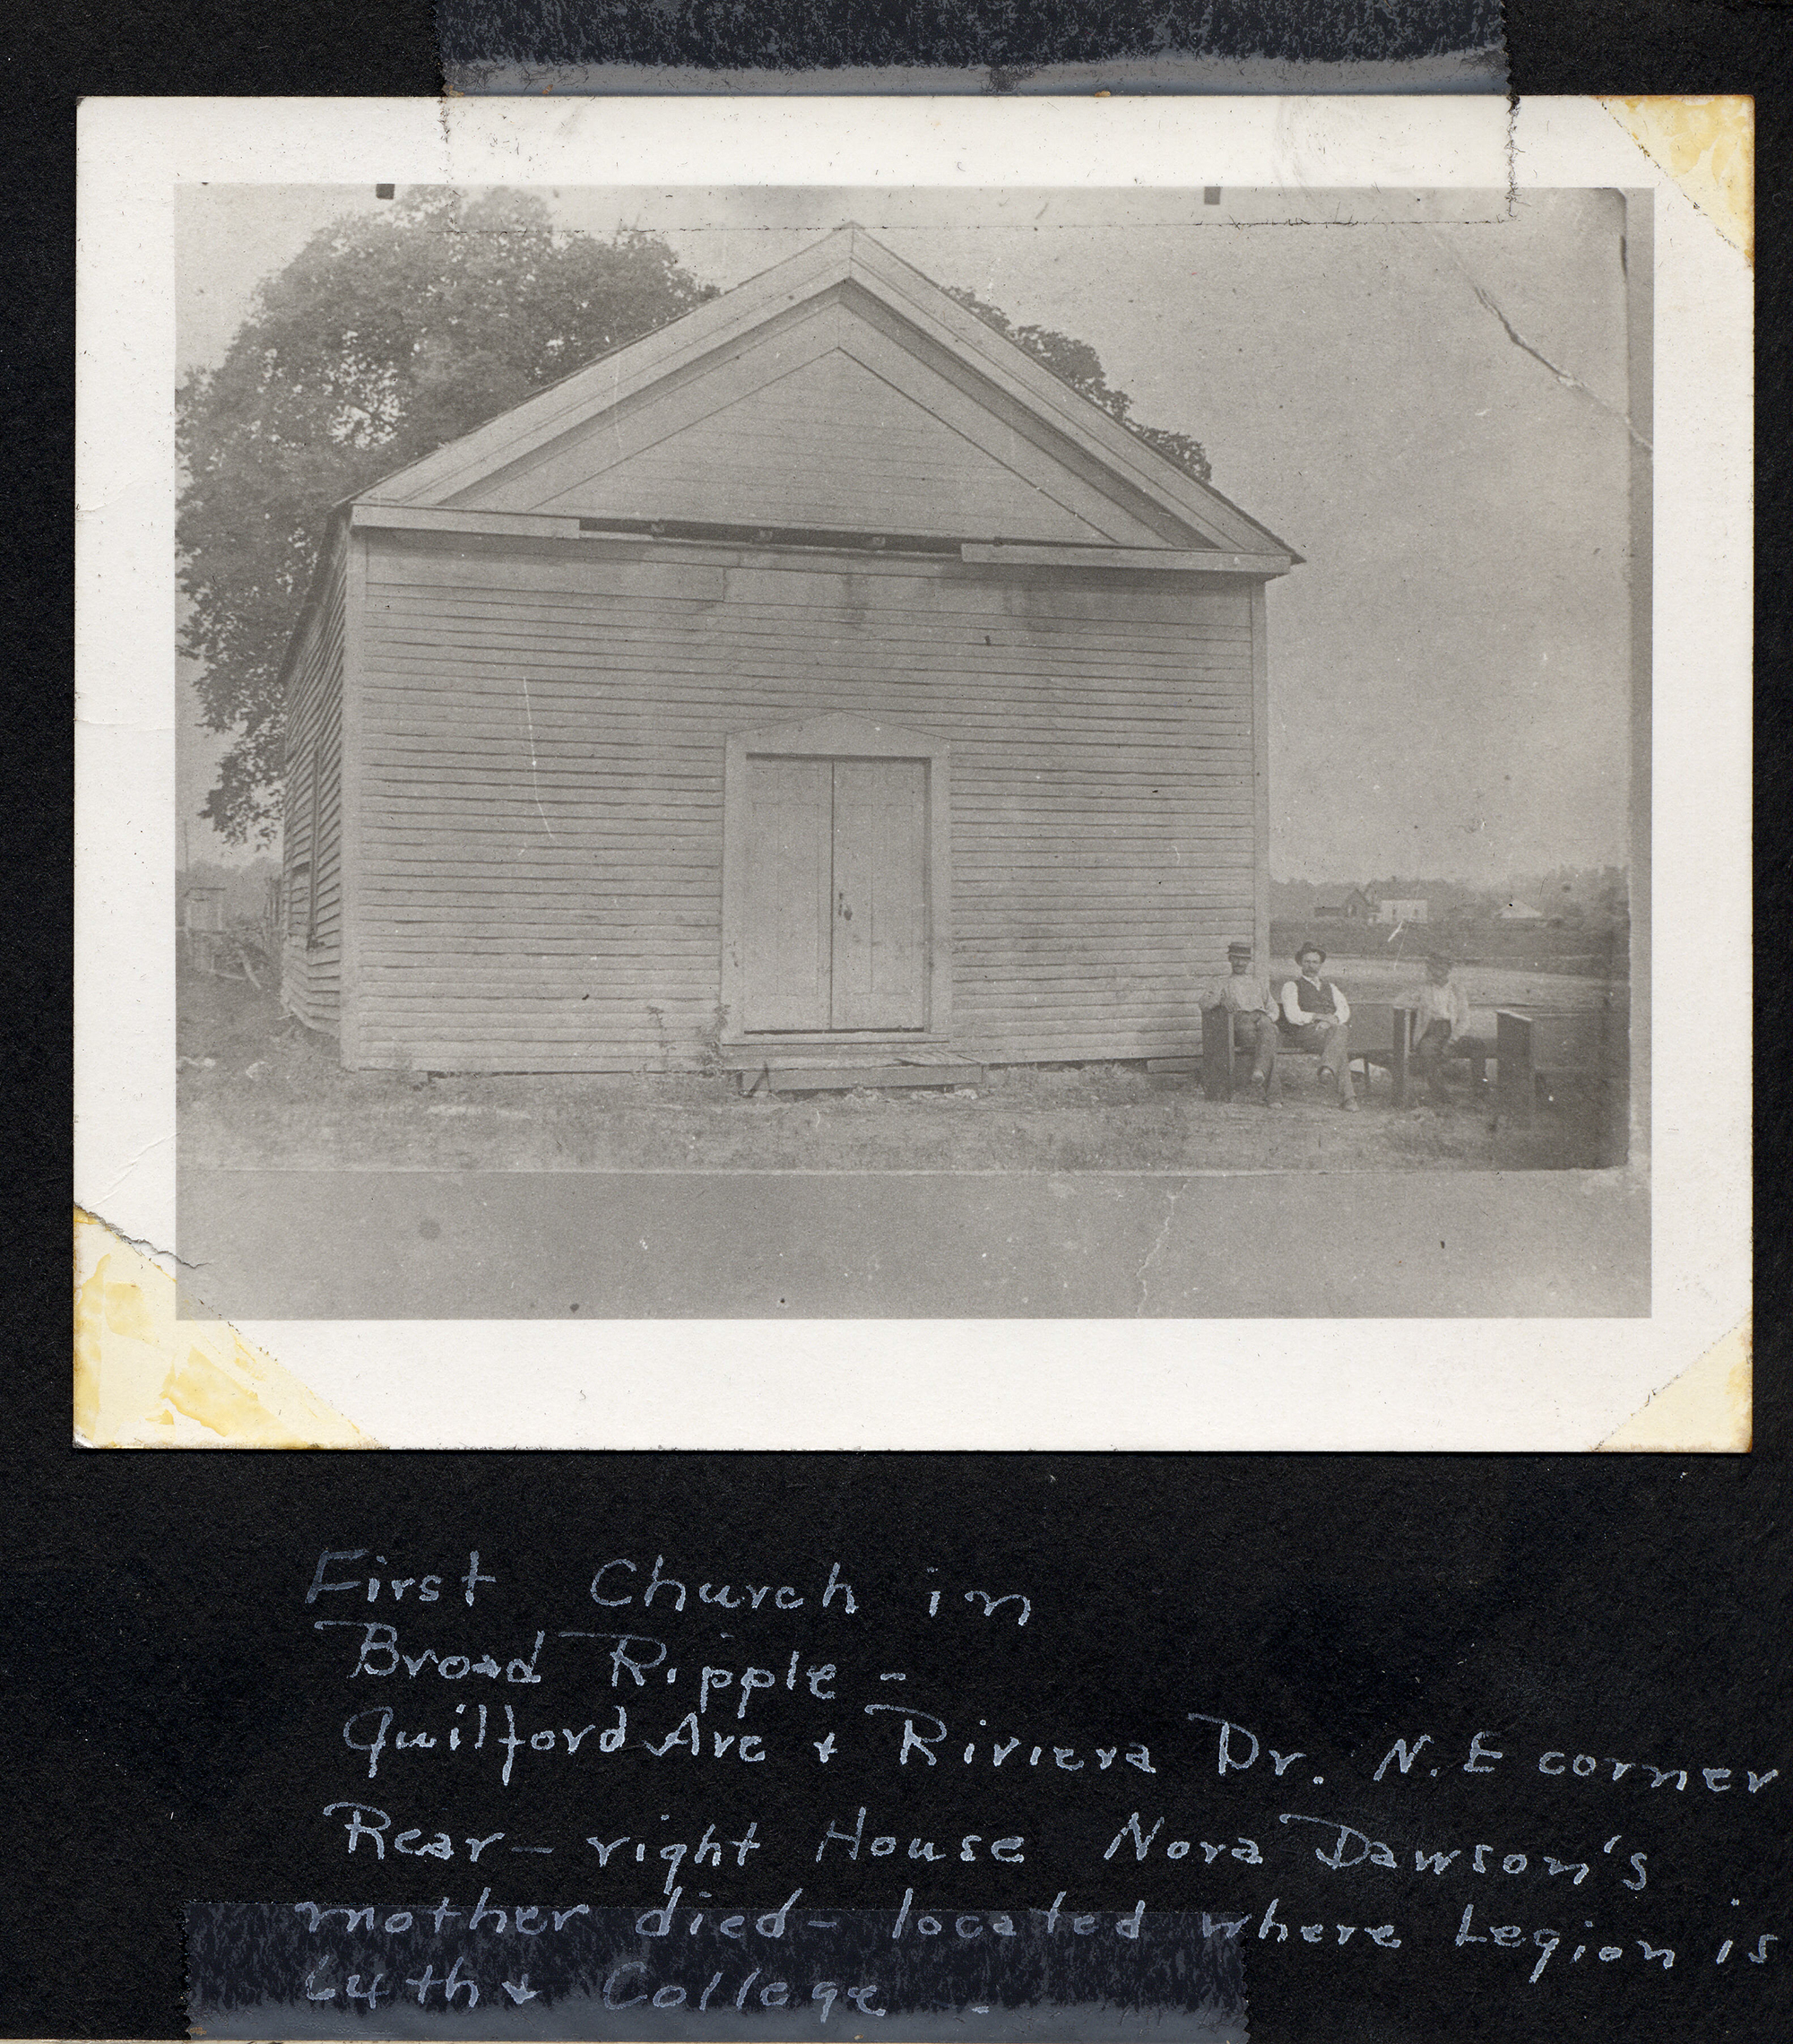 First Church in
Broad Ripple -
Guilford Ave + Riviera Dr. N.E corner
Rear - right House Nora Dawson's
mother died - located where Legion is
64th + College -